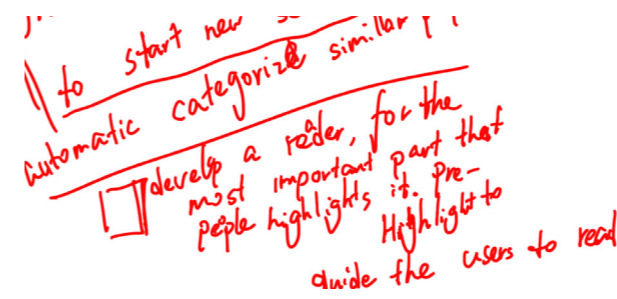 to start new
automatic categorize similar
develop a reader, for the
most important part that
people highlights it. Pre-
Highlight to
guide the users to read